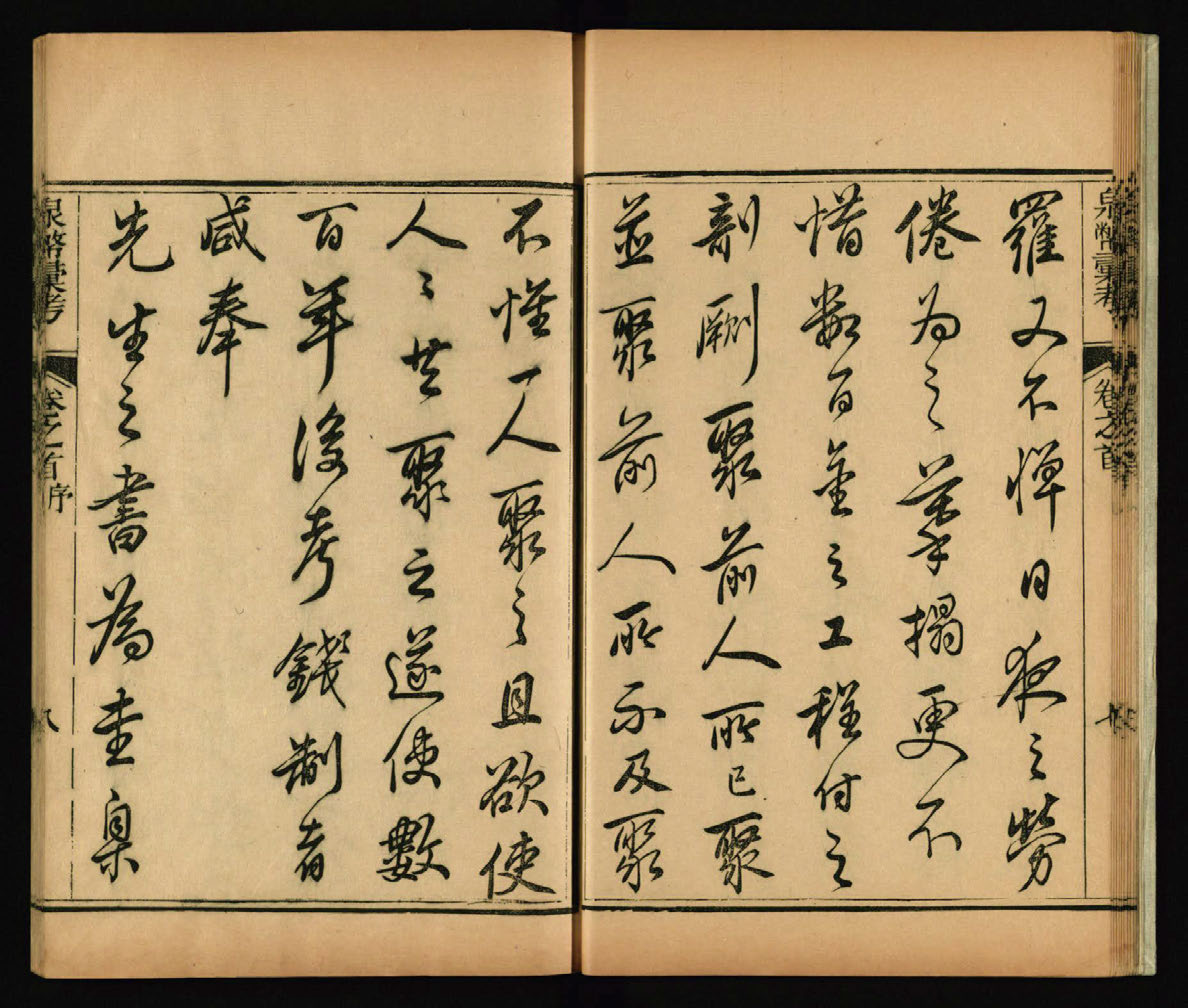 泉幣彙考 卷之首
羅又不憚日夜之勞
倦为之摹搨更不
惜數百金之工程付之
剞劂聚前人所已聚
並聚前人所不及聚
不惟一人聚之且欲使
人〻共聚之遂使數
百年後考錢制者
咸奉
先生之書為圭臬
泉幣彙考 卷之首序 八